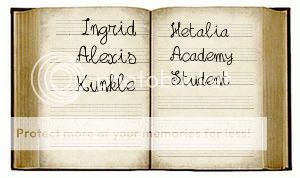 Ingrid
Alexis
Kunkle
Hetalia
Academy
Student
photobucket
Protect more of your memories for less!